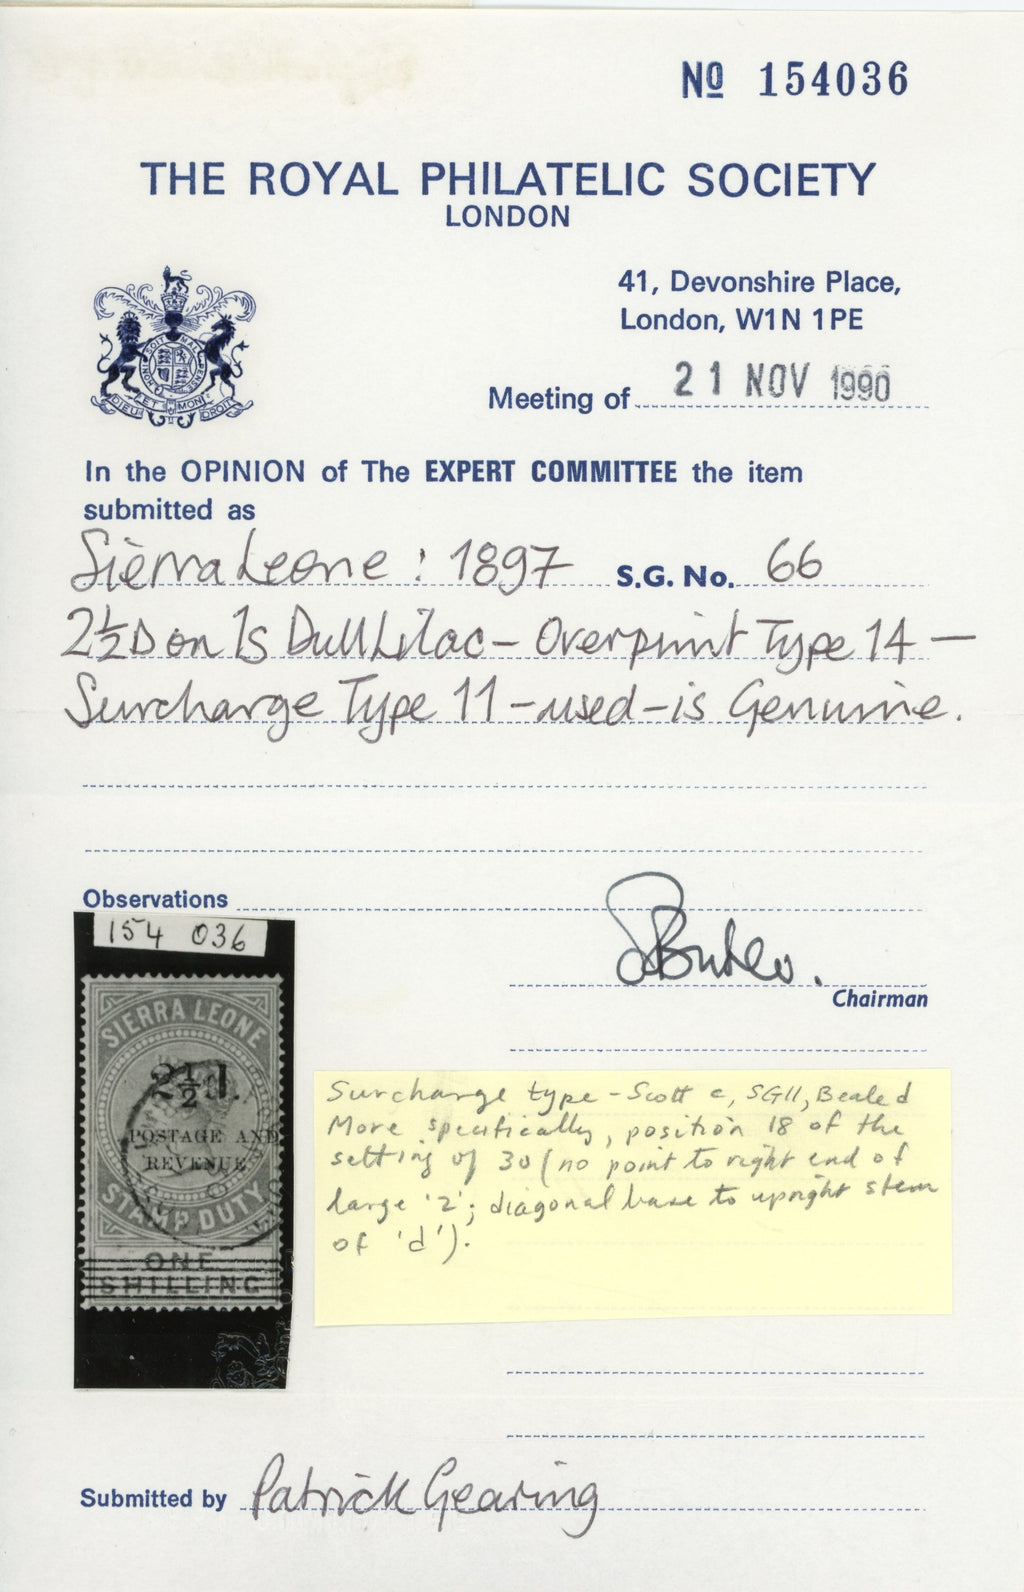 Nº 154036
THE ROYAL PHILATELIC SOCIETY
LONDON
41, Devonshire Place,
London, W1N 1PE
SOIT MAL
HONI PENSE
DIEU ET MON DROIT
Meeting of 21 NOV 1990
In the OPINION of The EXPERT COMMITTEE the item
submitted as
Sierra Leone : 1897 S.G. No. 66
2½D on 1s Dull Lilac - Overprint Type 14 -
Surcharge Type 11 - used - is Genuine.
Observations
Chairman
154 036
SIERRA LEONE
2½d.
POSTAGE AND
REVENUE
STAMP DUTY
ONE
SHILLING
Surcharge type - Scott c, SG11, Beale d
More specifically, position 18 of the
setting of 30 (no point to right end of
large '2'; diagonal base to upright stem
of 'd').
Submitted by Patrick Gearing